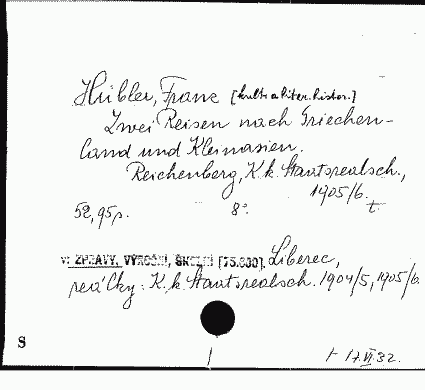 Hübler, Franz [kult. a liter. histor.]
Zwei Reisen nach Griechen-
land und Kleinasien.
Reichenberg, K.k. Staatsrealsch.,
1905/6.
52, 95 p. 8°. t.
v: ZPRÁVY, VÝROČNÍ, ŠKOLNÍ [75.800]. Liberec,
reálky: K.k. Staatsrealsch. 1904/5, 1905/6.
S
17.VI.32.